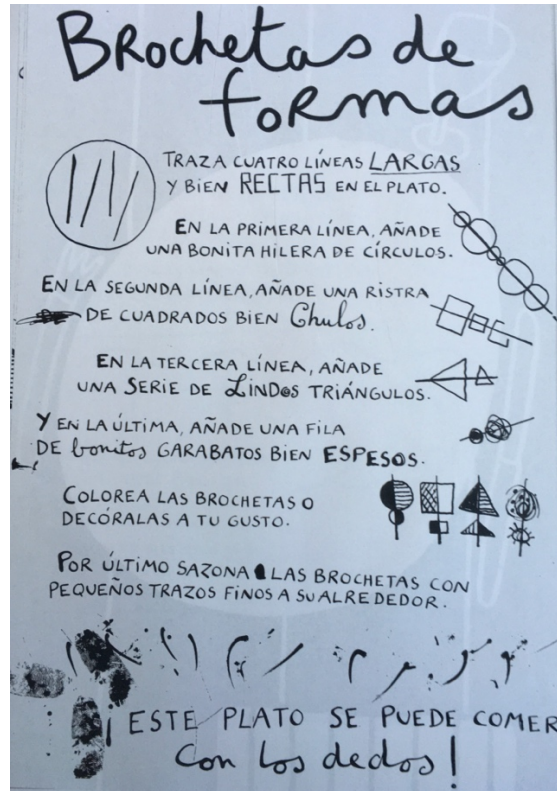 BRochetas de
foRmas
TRAZA CUATRO LÍNEAS LARGAS
Y BIEN RECTAS EN EL PLATO.
EN LA PRIMERA LÍNEA, AÑADE
UNA BONITA HILERA DE CÍRCULOS.
EN LA SEGUNDA LÍNEA, AÑADE UNA RISTRA
DE CUADRADOS BIEN Chulos.
EN LA TERCERA LÍNEA, AÑADE
UNA SERIE DE LINDOS TRIÁNGULOS.
Y EN LA ÚLTIMA, AÑADE UNA FILA
DE bonitos GARABATOS BIEN ESPESOS.
COLOREA LAS BROCHETAS O
DECÓRALAS A TU GUSTO.
POR ÚLTIMO SAZONA LAS BROCHETAS CON
PEQUEÑOS TRAZOS FINOS A SU ALREDEDOR.
¡ESTE PLATO SE PUEDE COMER
Con los dedos!